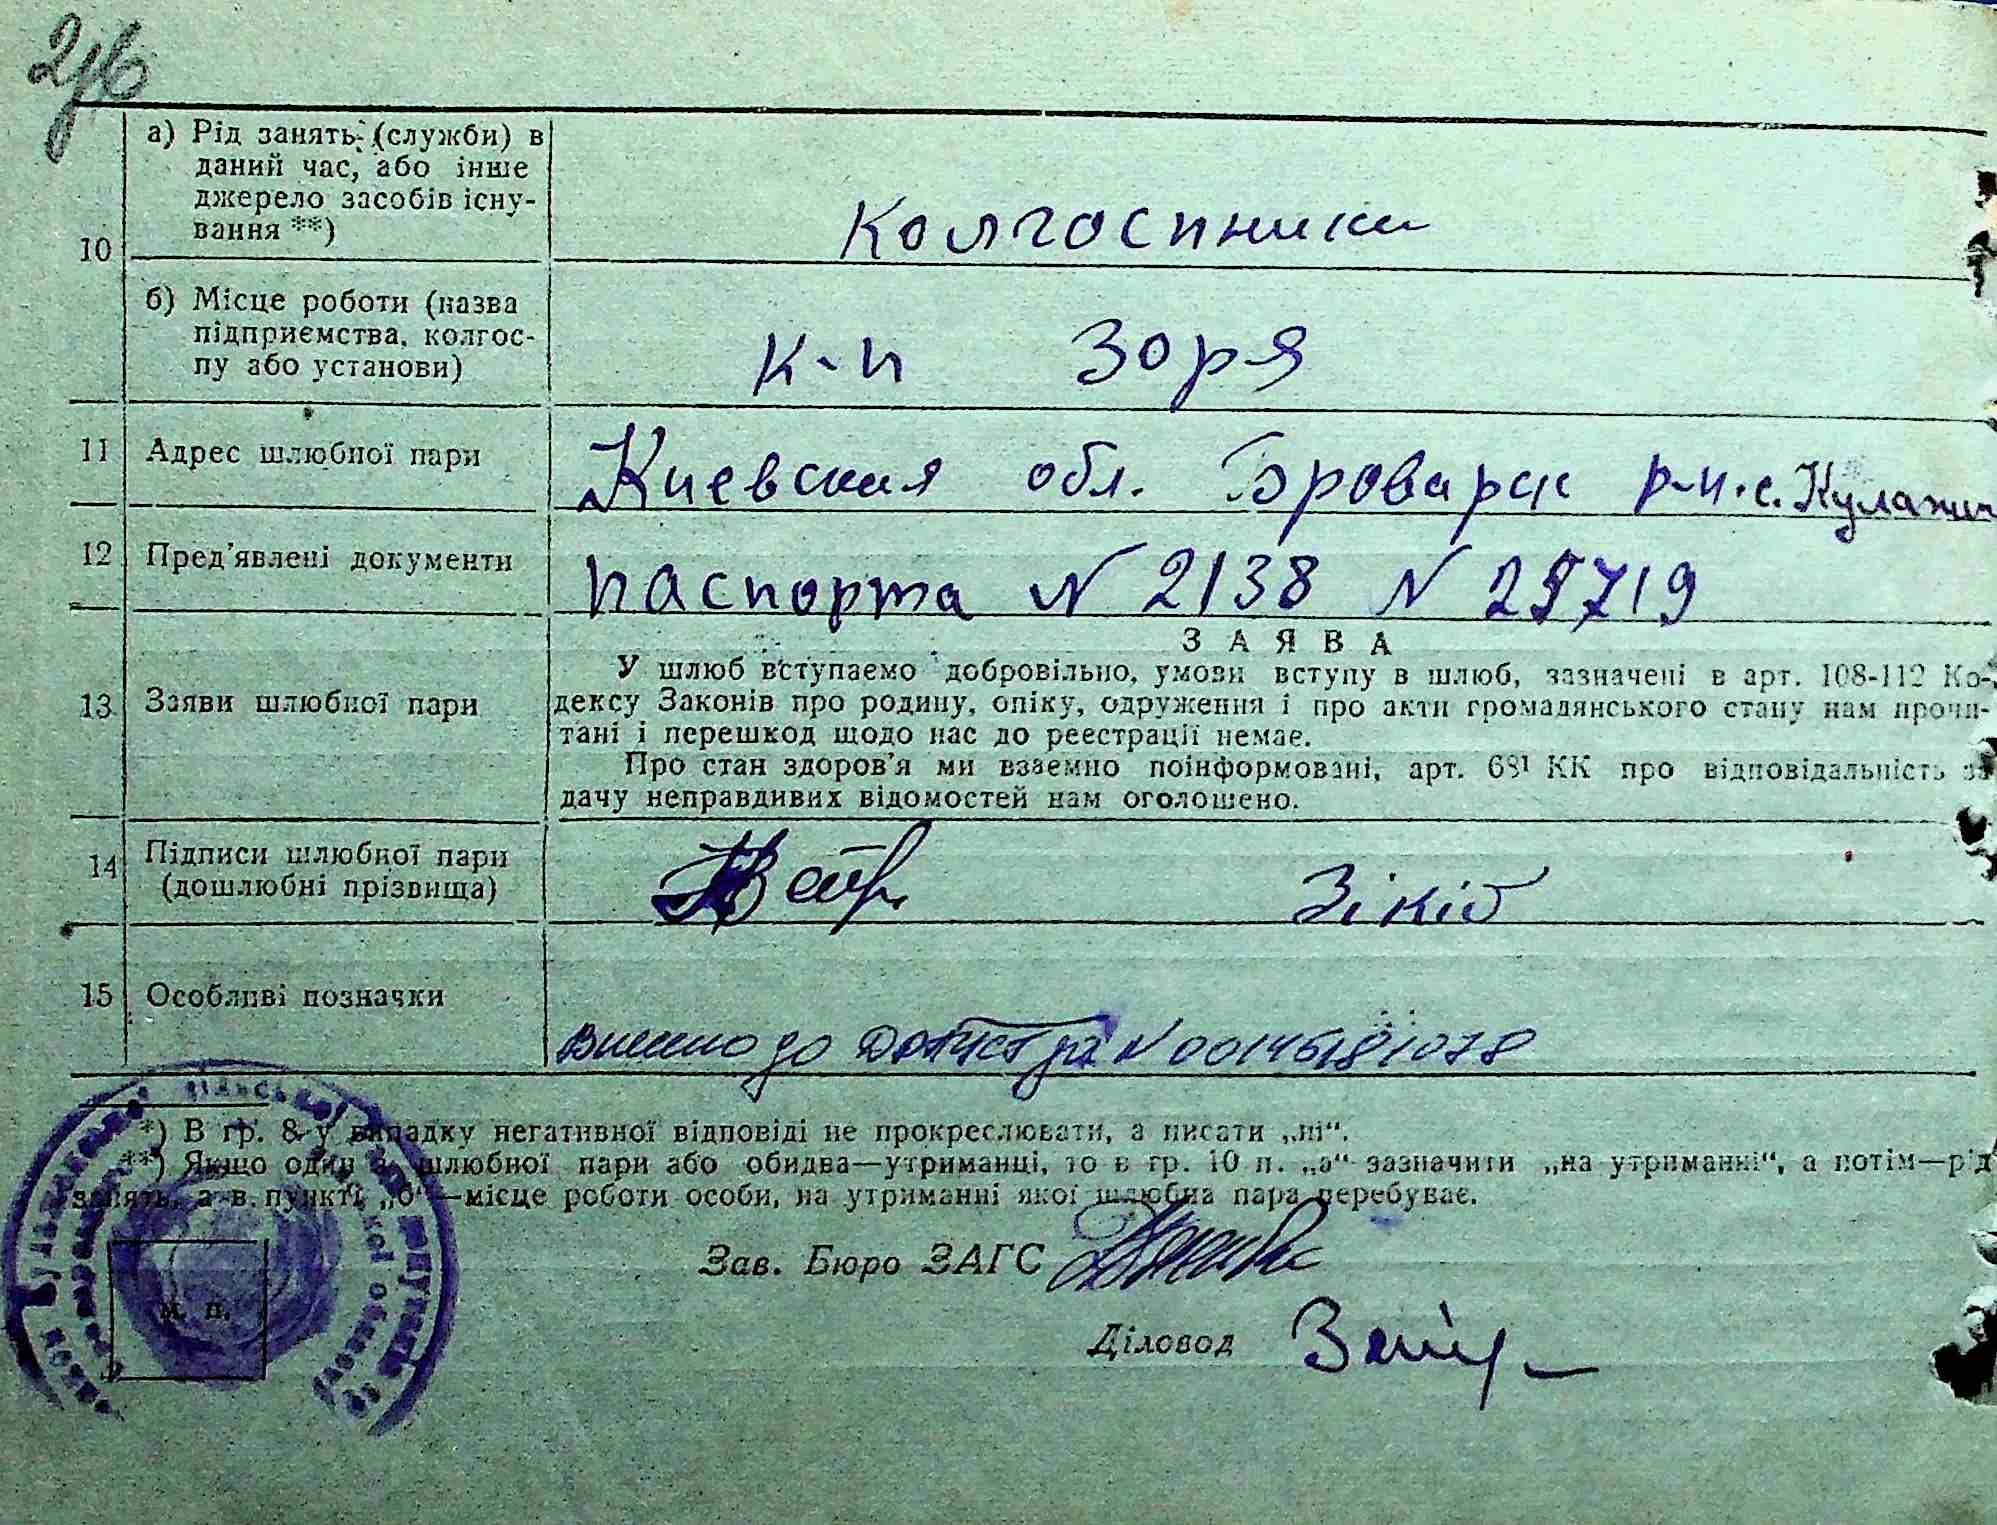 а) Рід занять (служби) в
даний час, або інше
джерело засобів існу-
вання **)
10
Колгоспники
б) Місце роботи (назва
підприємства, колгос-
пу або установи)
к-п Зоря
11 Адрес шлюбної пари
Киевская обл. Броварск р-н. с. Кулажин
12 Пред'явлені документи
паспорта N 2138 N
ЗАЯВА
13 Заяви шлюбної пари
У шлюб вступаємо добровільно, умови вступу в шлюб, зазначені в арт. 108-112 Ко-
дексу Законів про родину, опіку, одруження і про акти громадянського стану нам прочи-
тані і перешкод щодо нас до реєстрації немає.
Про стан здоров'я ми взаємно поінформовані, арт. 68¹ КК про відповідальність за
дачу неправдивих відомостей нам оголошено.
14 Підписи шлюбної пари
(дошлюбні прізвища)
15 Особливі позначки
Внесено до N
*) В гр. 8 у випадку негативної відповіді не прокреслювати, а писати „ні“.
**) Якщо один з шлюбної пари або обидва—утриманці, то в гр. 10 п. „а“ зазначити „на утриманні“, а потім—рід
занять, а в пункті „б“—місце роботи особи, на утриманні якої шлюбна пара перебуває.
Зав. Бюро ЗАГС
м. п.
Діловод